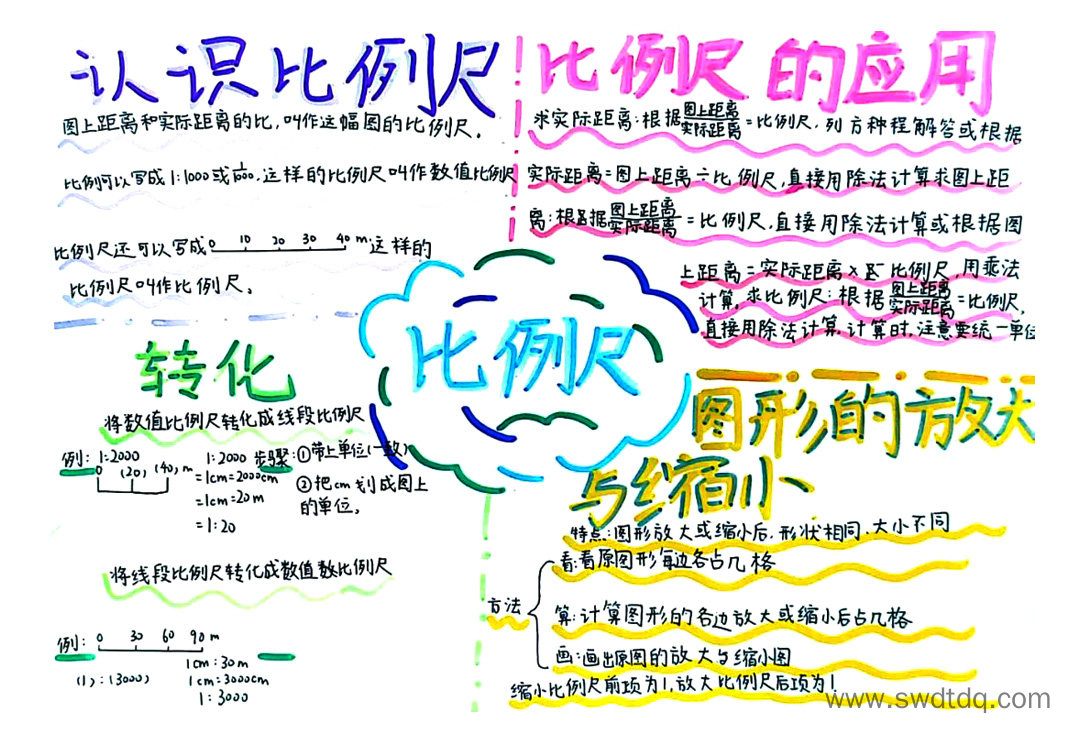 认识比例尺
图上距离和实际距离的比,叫作这幅图的比例尺。
比例可以写成1:1000或1/1000,这样的比例尺叫作数值比例尺
比例尺还可以写成 0 10 20 30 40 m 这样的
比例尺叫作比例尺。
比例尺的应用
求实际距离:根据图上距离/实际距离=比例尺,列方种程解答或根据
实际距离=图上距离÷比例尺,直接用除法计算求图上距
离:根据图上距离/实际距离=比例尺,直接用除法计算或根据图
上距离=实际距离×比例尺,用乘法
计算。求比例尺:根据图上距离/实际距离=比例尺,
直接用除法计算,计算时,注意要统一单位
比例尺
转化
将数值比例尺转化成线段比例尺
例:1:2000
0 (20) (40) m
1:2000
=1cm:2000cm
=1cm:20m
=1:20
步骤:①带上单位(一致)
②把cm划成图上
的单位。
将线段比例尺转化成数值数比例尺
例: 0 30 60 90 m
(1):(3000)
1cm:30m
1cm:3000cm
1:3000
图形的放大
与缩小
特点:图形放大或缩小后,形状相同,大小不同
方法
看:看原图形每边各占几格
算:计算图形的各边放大或缩小后占几格
画:画出原图的放大与缩小图
缩小比例尺前项为1,放大比例尺后项为1
www.swdtdq.com